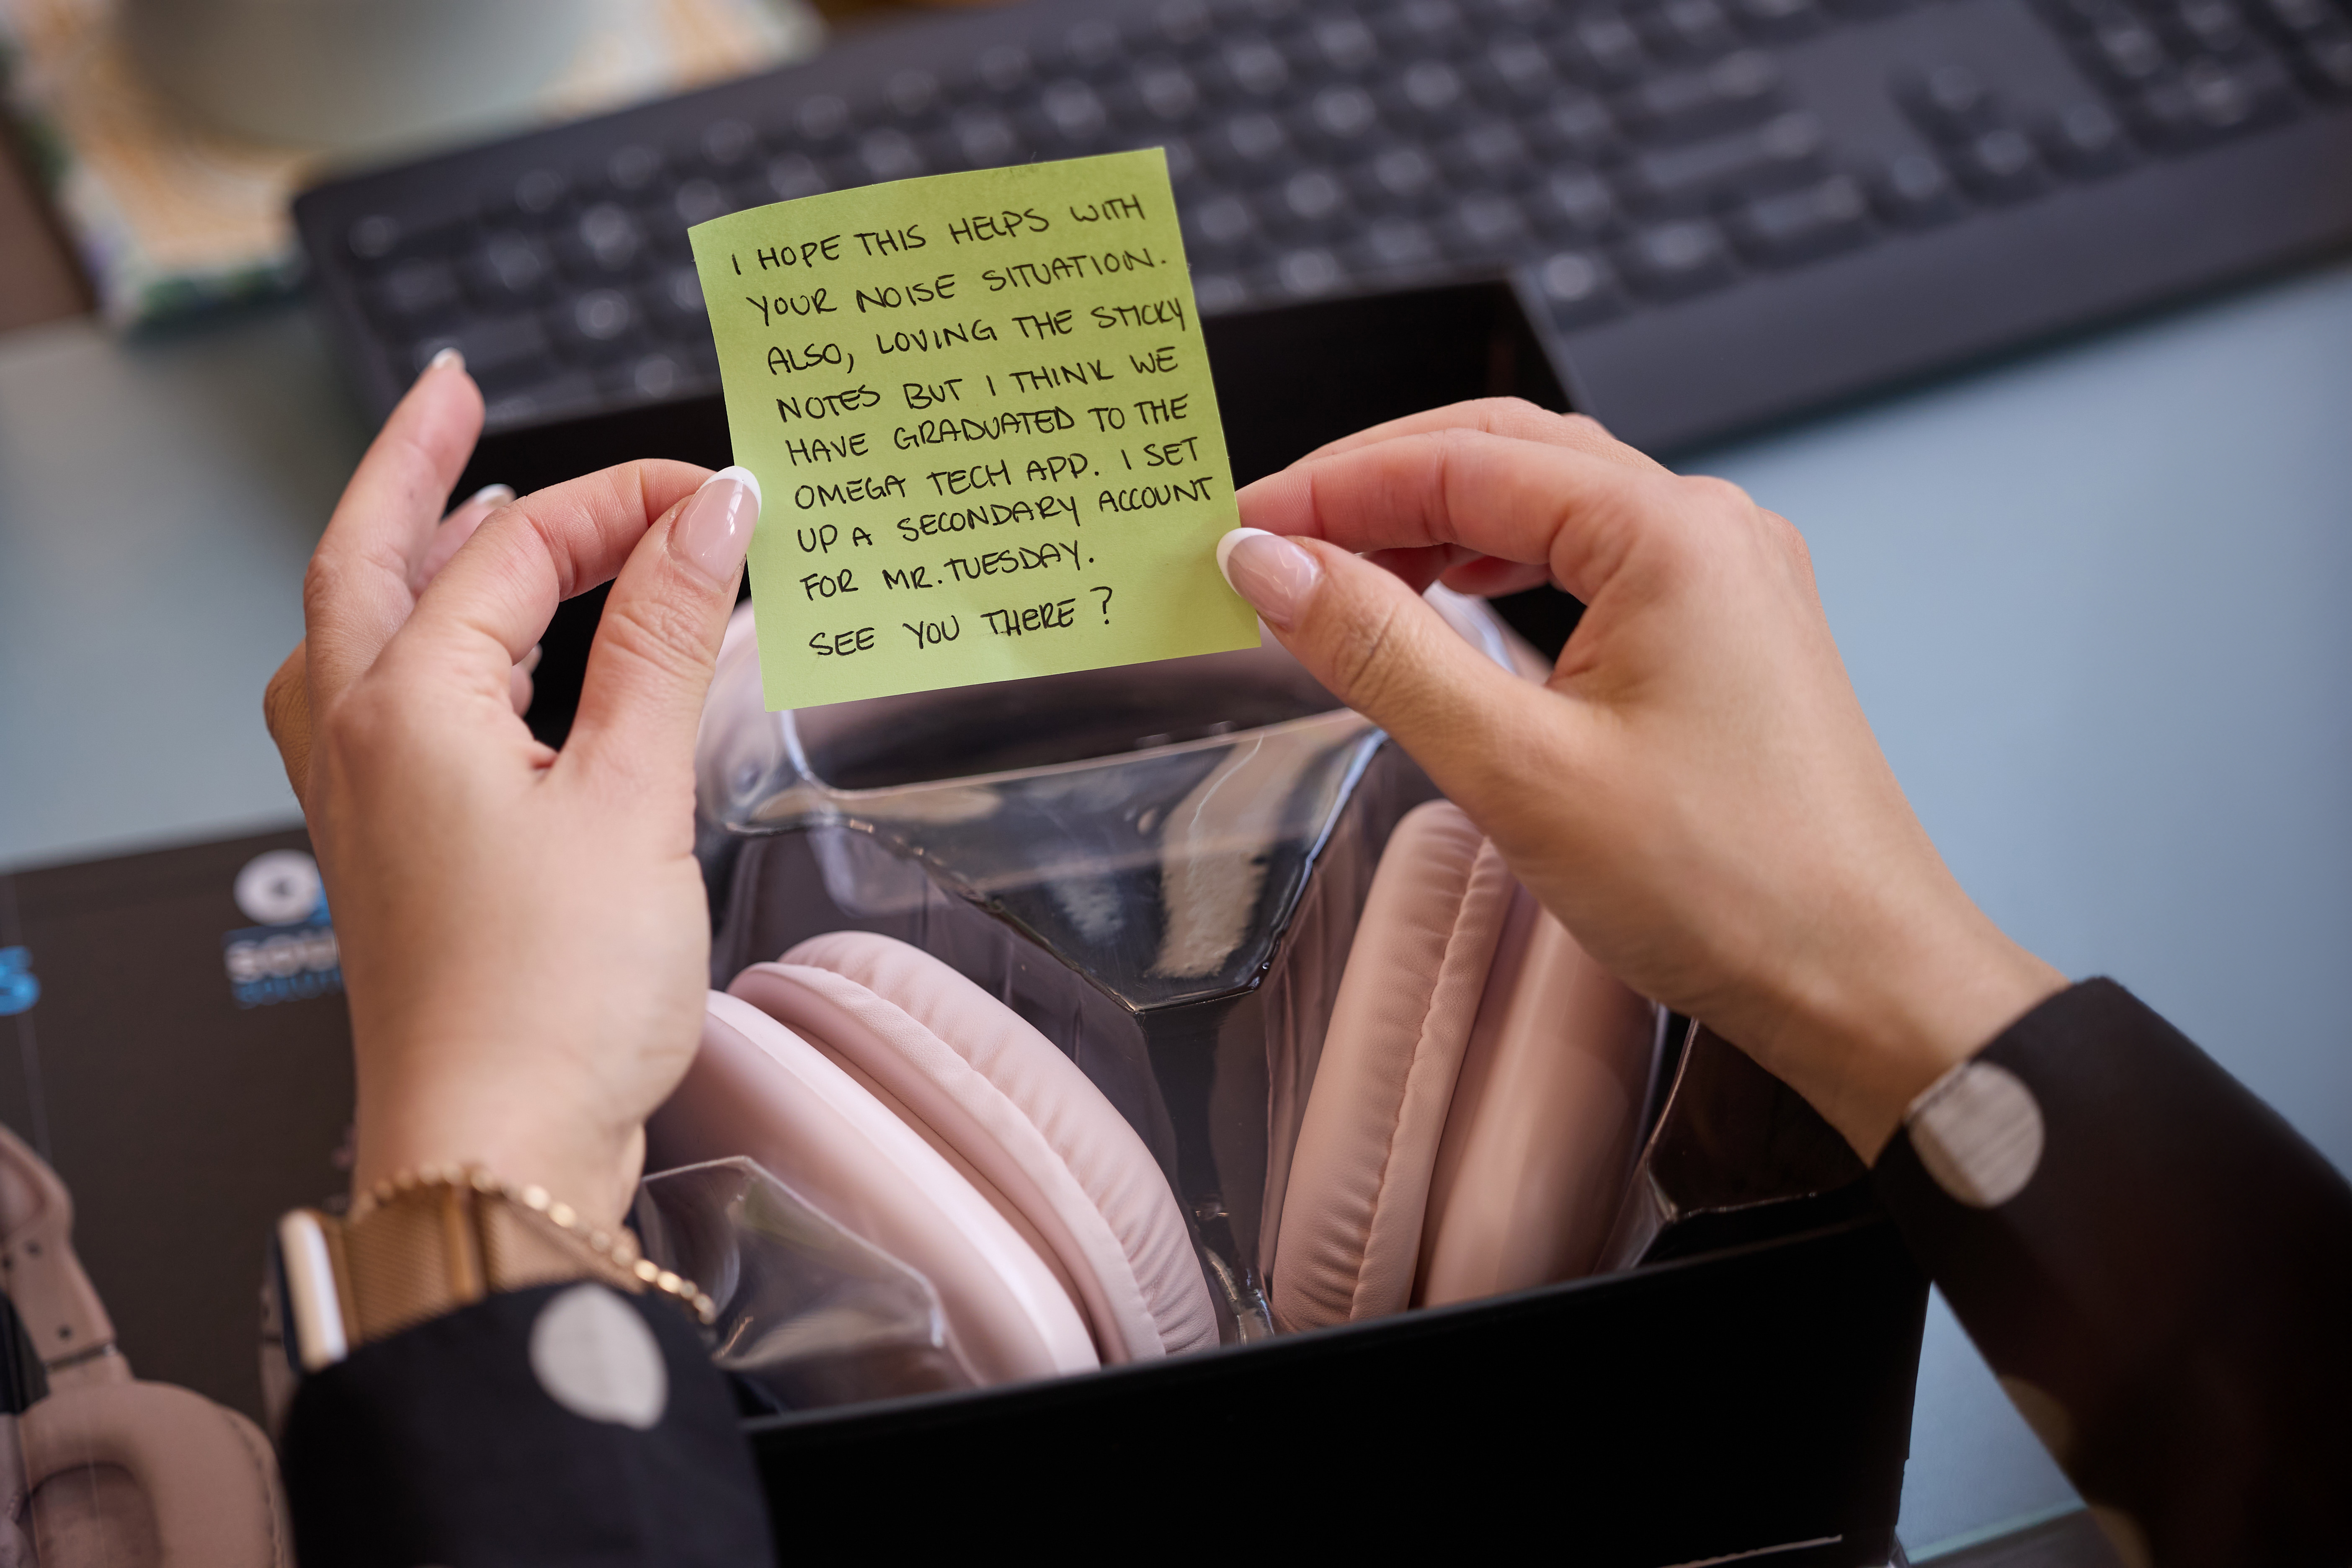 I HOPE THIS HELPS WITH
YOUR NOISE SITUATION.
ALSO, LOVING THE STICKY
NOTES BUT I THINK WE
HAVE GRADUATED TO THE
OMEGA TECH APP. I SET
UP A SECONDARY ACCOUNT
FOR MR. TUESDAY.
SEE YOU THERE?